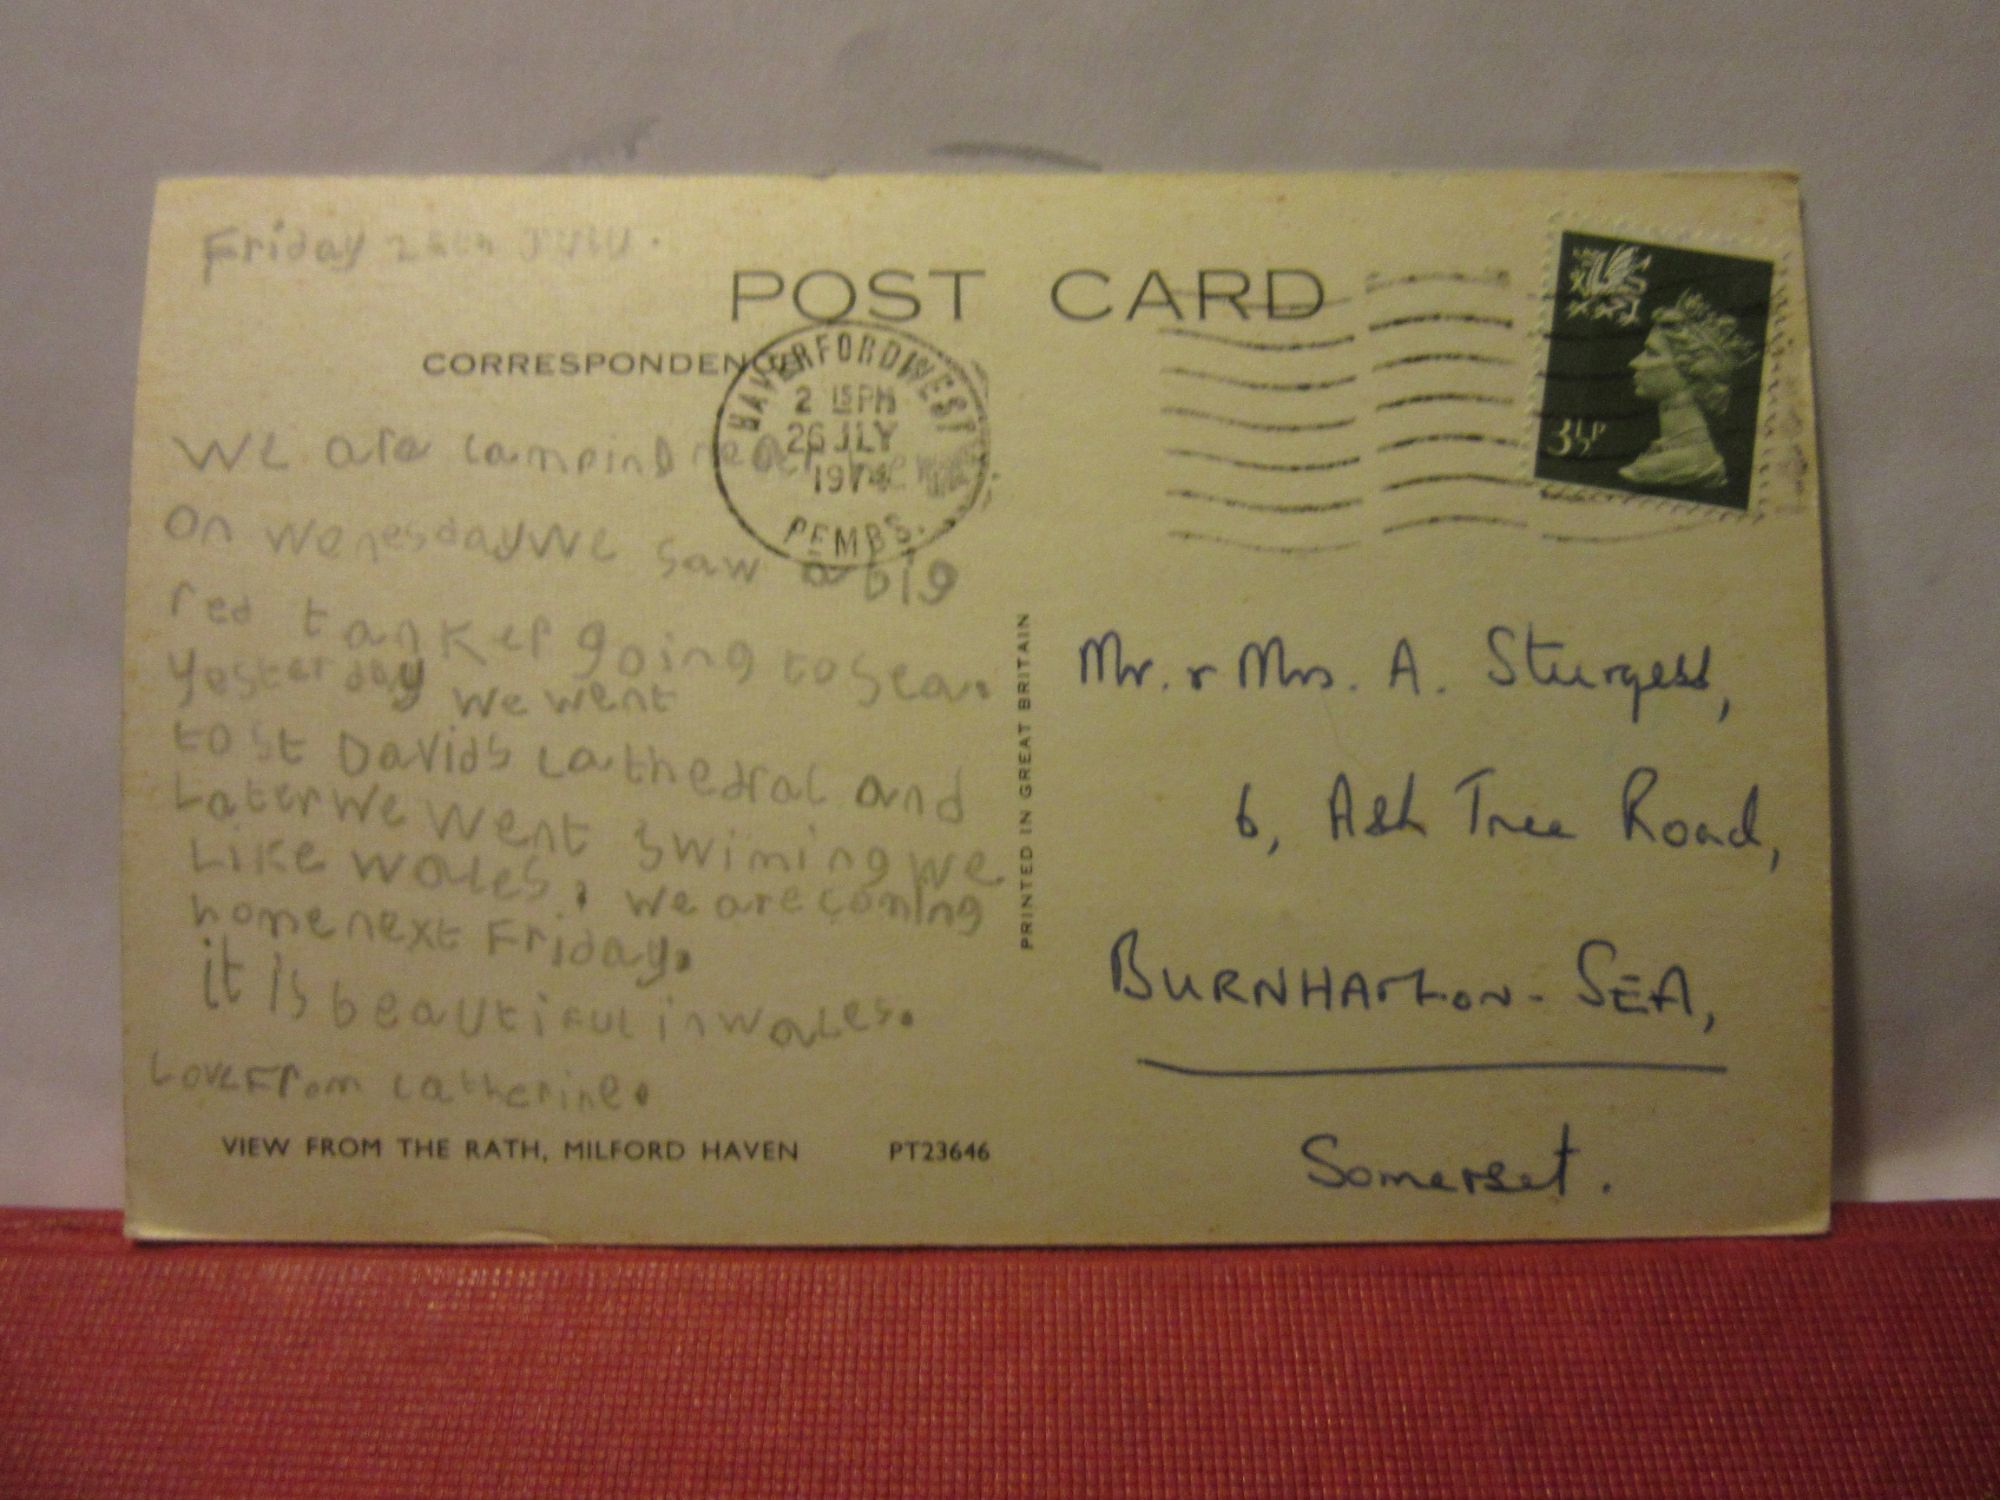 Friday 26th JULY.
POST CARD
CORRESPONDENCE
HAVERFORDWEST
2 15PM
26 JLY
1974
PEMBS.
3½P
We are camping near the
on WenesdayWe saw a big
red tanker going to sea.
yesterday we went
to st Davids cathedral and
Later We Went swiming we
Like Wales. we are coming
home next Friday.
it is beautiful in wales.
Love From catherine.
VIEW FROM THE RATH, MILFORD HAVEN PT23646
PRINTED IN GREAT BRITAIN
Mr. & Mrs. A. Sturgess,
6, Ash Tree Road,
BURNHAM-ON-SEA,
Somerset.